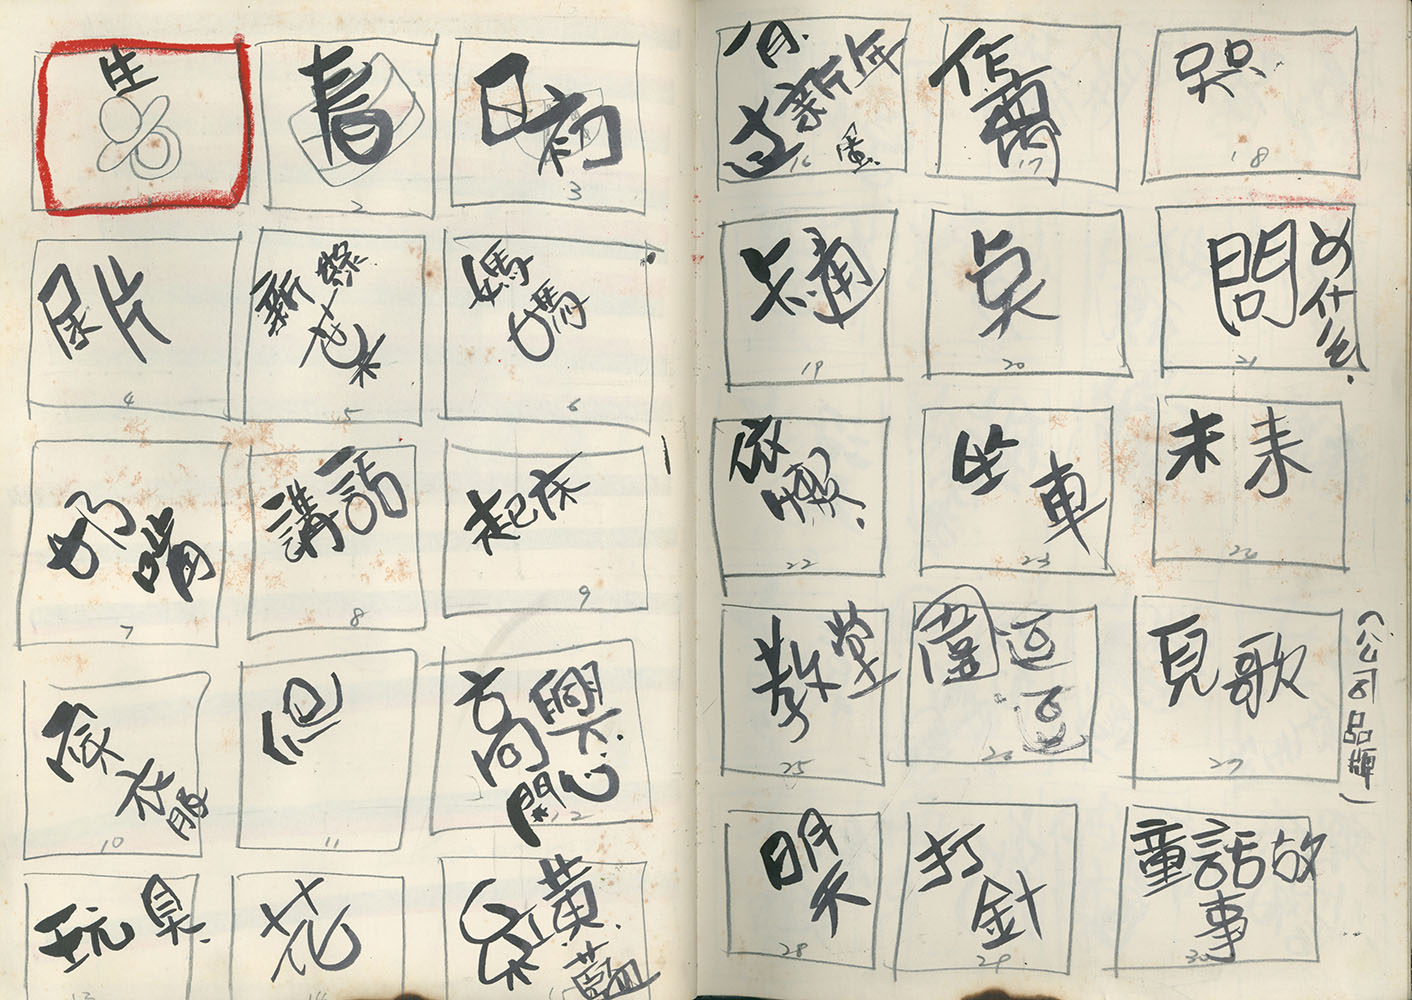 生
1
2
日初
3
尿片
4
新
5
媽媽
6
奶嘴
7
講話
8
起床
9
衣服
10
但
11
高興
開心
12
玩具
花
紅黃
藍
一月
過新年
16
17
哭
18
卡通
19
20
問為什么
21
依賴
22
坐車
23
未来
24
教堂
25
26
兒歌
27
(公司品牌)
明天
28
打針
29
童話故
事
30